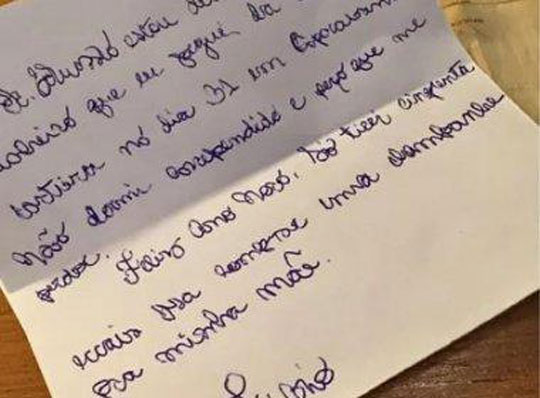 Sr. Eduardo estou de
dinheiro que eu peguei da
carteira no dia 31 em Copacabana
Não dormi arrependido e peço que me
perdoe. Feliz Ano Novo. Só tirei cinquenta
reais pra comprar uma champanhe
pra minha mãe.